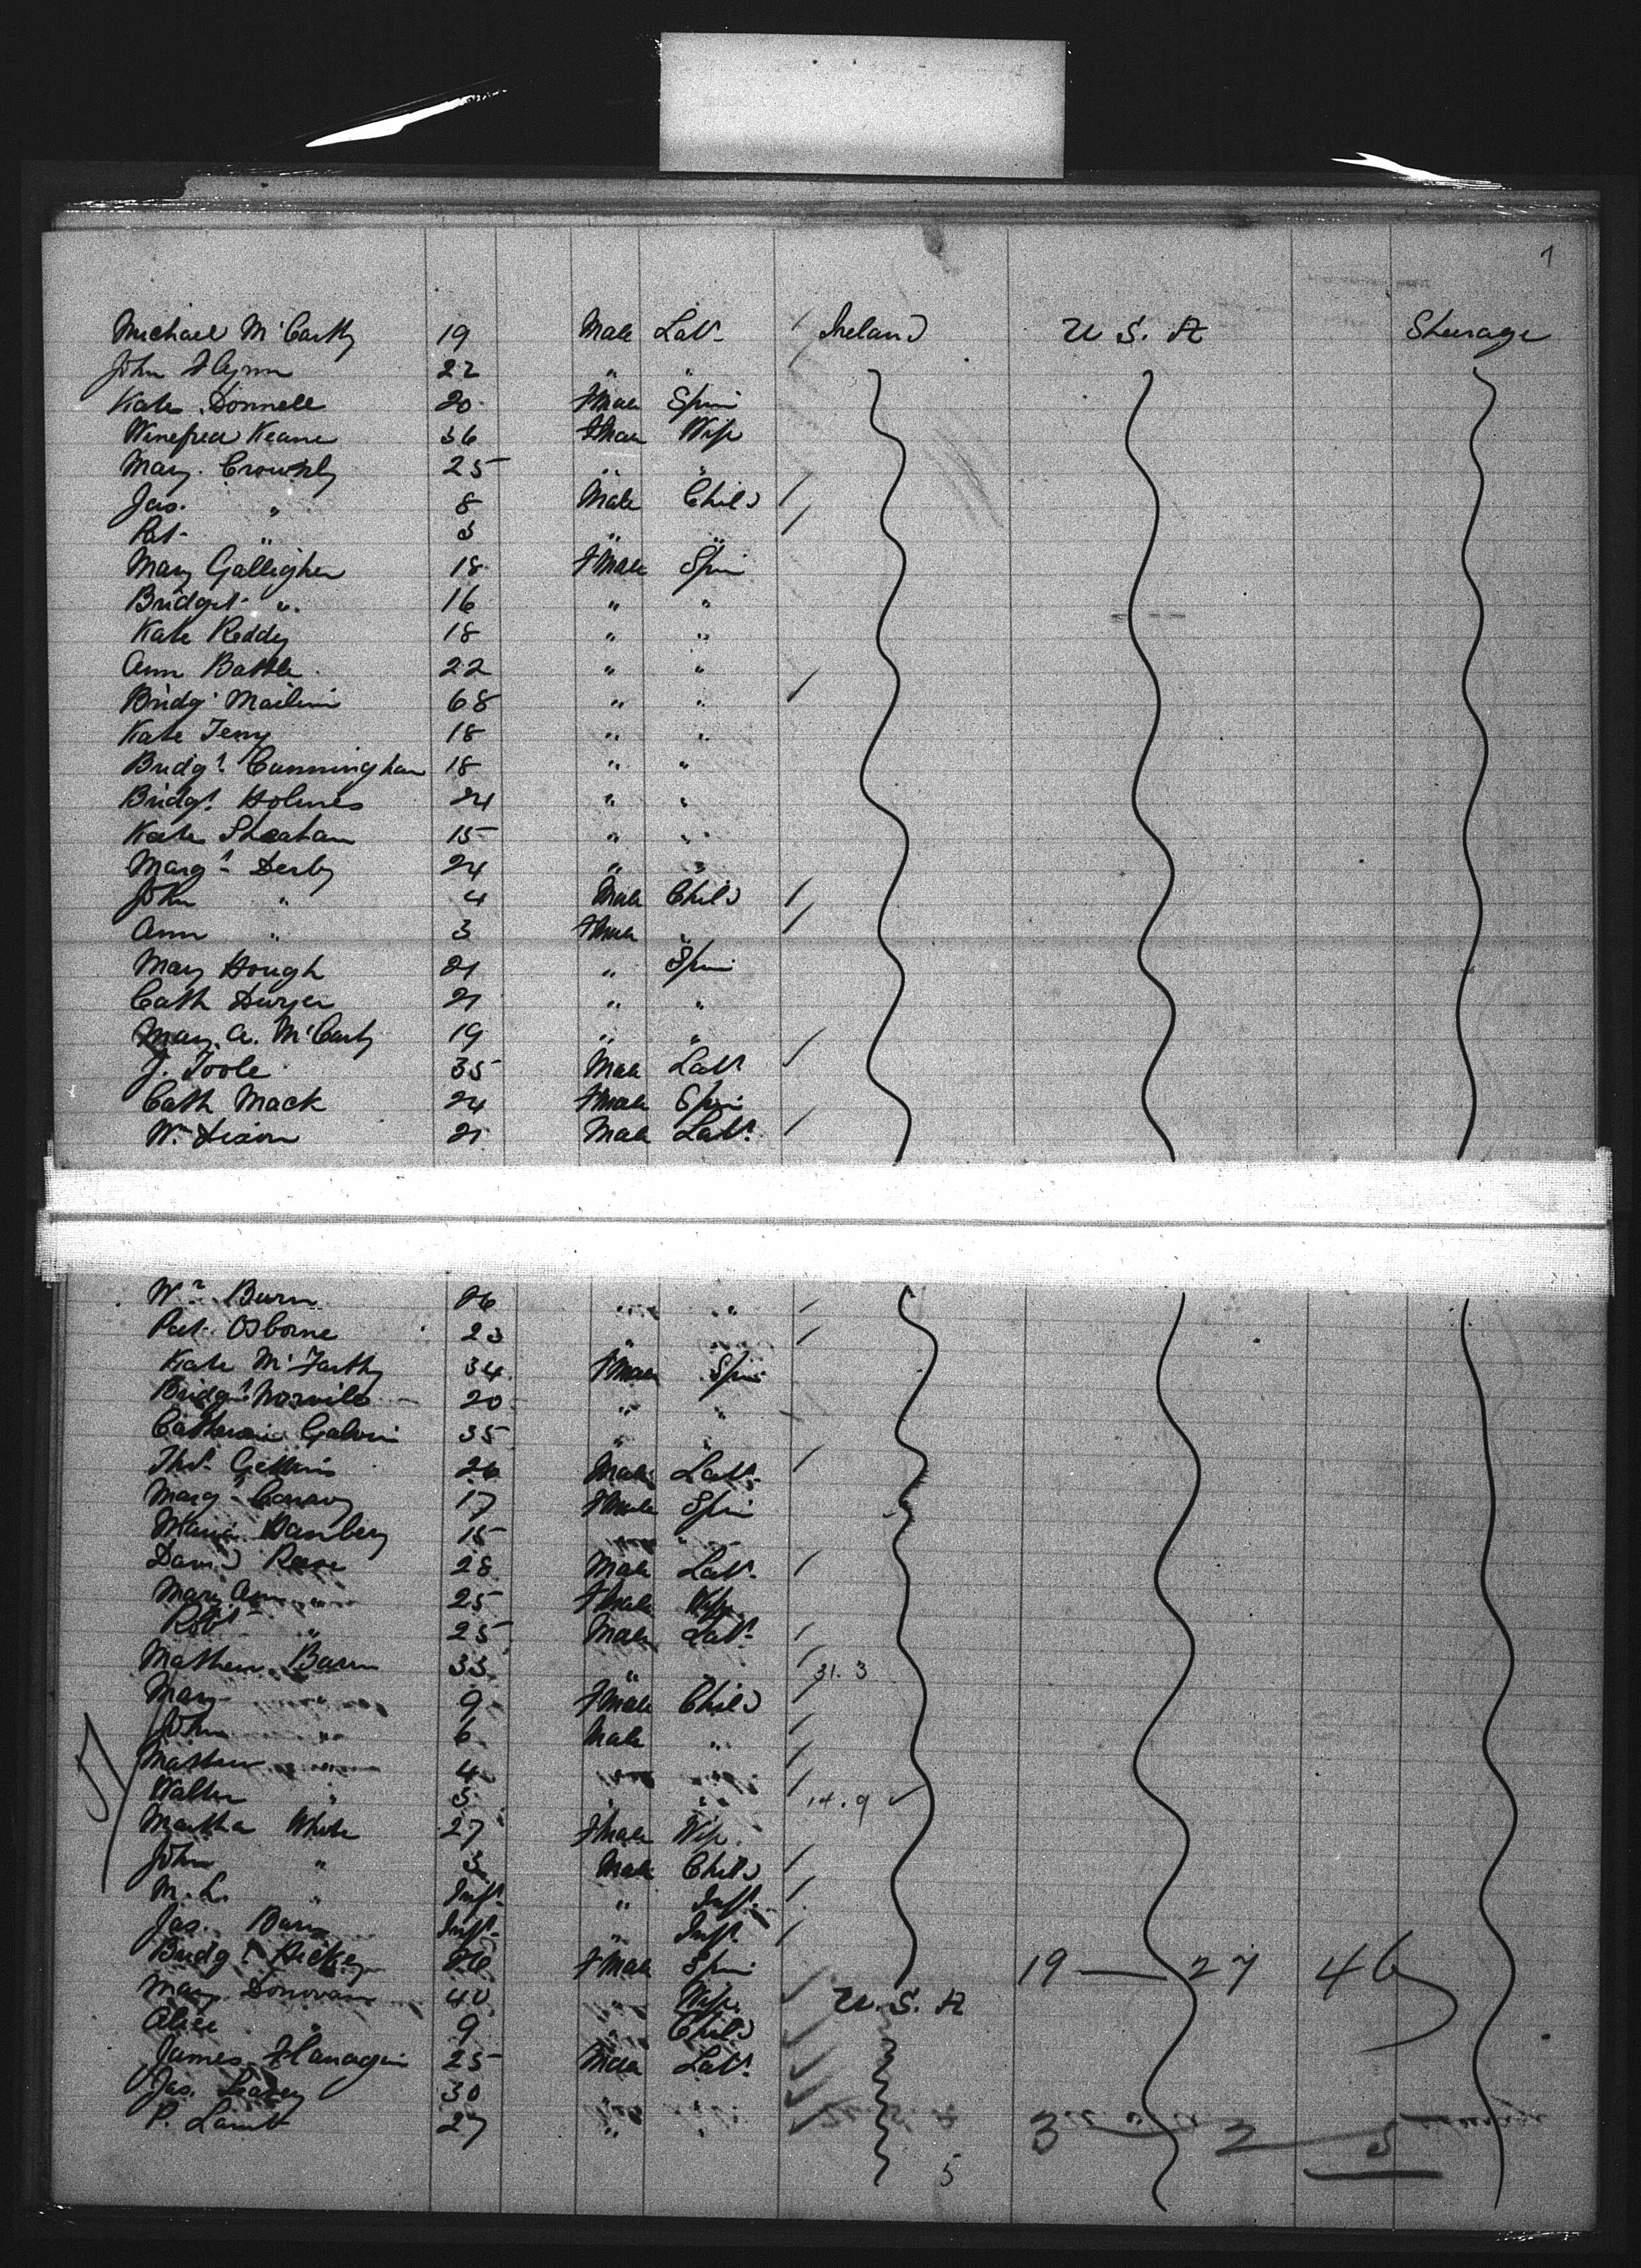 1
Michael McCarthy 19 Male Labr Ireland U S. A Steerage
John Flynn 22 " "
Kate Donnell 20 Fmale Spin
Winefred Keane 36 Fmale Wife
Mary 25 " "
Jas. " 8 Male Child
Pat " 3 " "
Mary Galligher 18 Fmale Spin
Bridget " 16 " "
Kate Reddy 18 " "
Ann Battle 22 " "
Bridgt 68 " "
Kate Terry 18 " "
Bridgt Cunningham 18 " "
Bridgt Holmes 24 " "
Kate Sheahan 15 " "
Margt Derby 24 " "
John " 4 Male Child
Ann " 3 Fmale "
Mary Hough 21 " Spin
Cath Dwyer 21 " "
Mary A. McCarty 19 " "
J. Toole 35 Male Labr
Cath Mack 24 Fmale Spin
Wm Dixon 21 Male Labr
Wm Burn 26 " "
Pat. Osborne 23 "
Kate 34 Fmale Spin
Bridgt 20 " "
Catherine Galvin 35 " "
Thos 26 Male Labr
Margt Conway 17 Fmale Spin
Maria 15 " "
David 28 Male Labr
Mary Ann " 25 Fmale Wife
Robt " 25 Male Labr
Mathew 33 " " 31. 3
Mary " 9 Fmale Child
John " 6 Male "
Mathew " 4 " "
Walter " 3 " " 14. 9
Martha White 27 Fmale Wife
John " 3 Male Child
M. L. " Inft " Inft
Jas. Inft " Inft
Bridgt Hickey 26 Fmale Spin 19 — 27 46
Mary Donovan 40 " Wife U. S. A
Alice " 9 " Child
James Flanagin 25 Male Labr
Jas. 30 " "
P. Lamb 27 " " 3 — 2 — 5
5